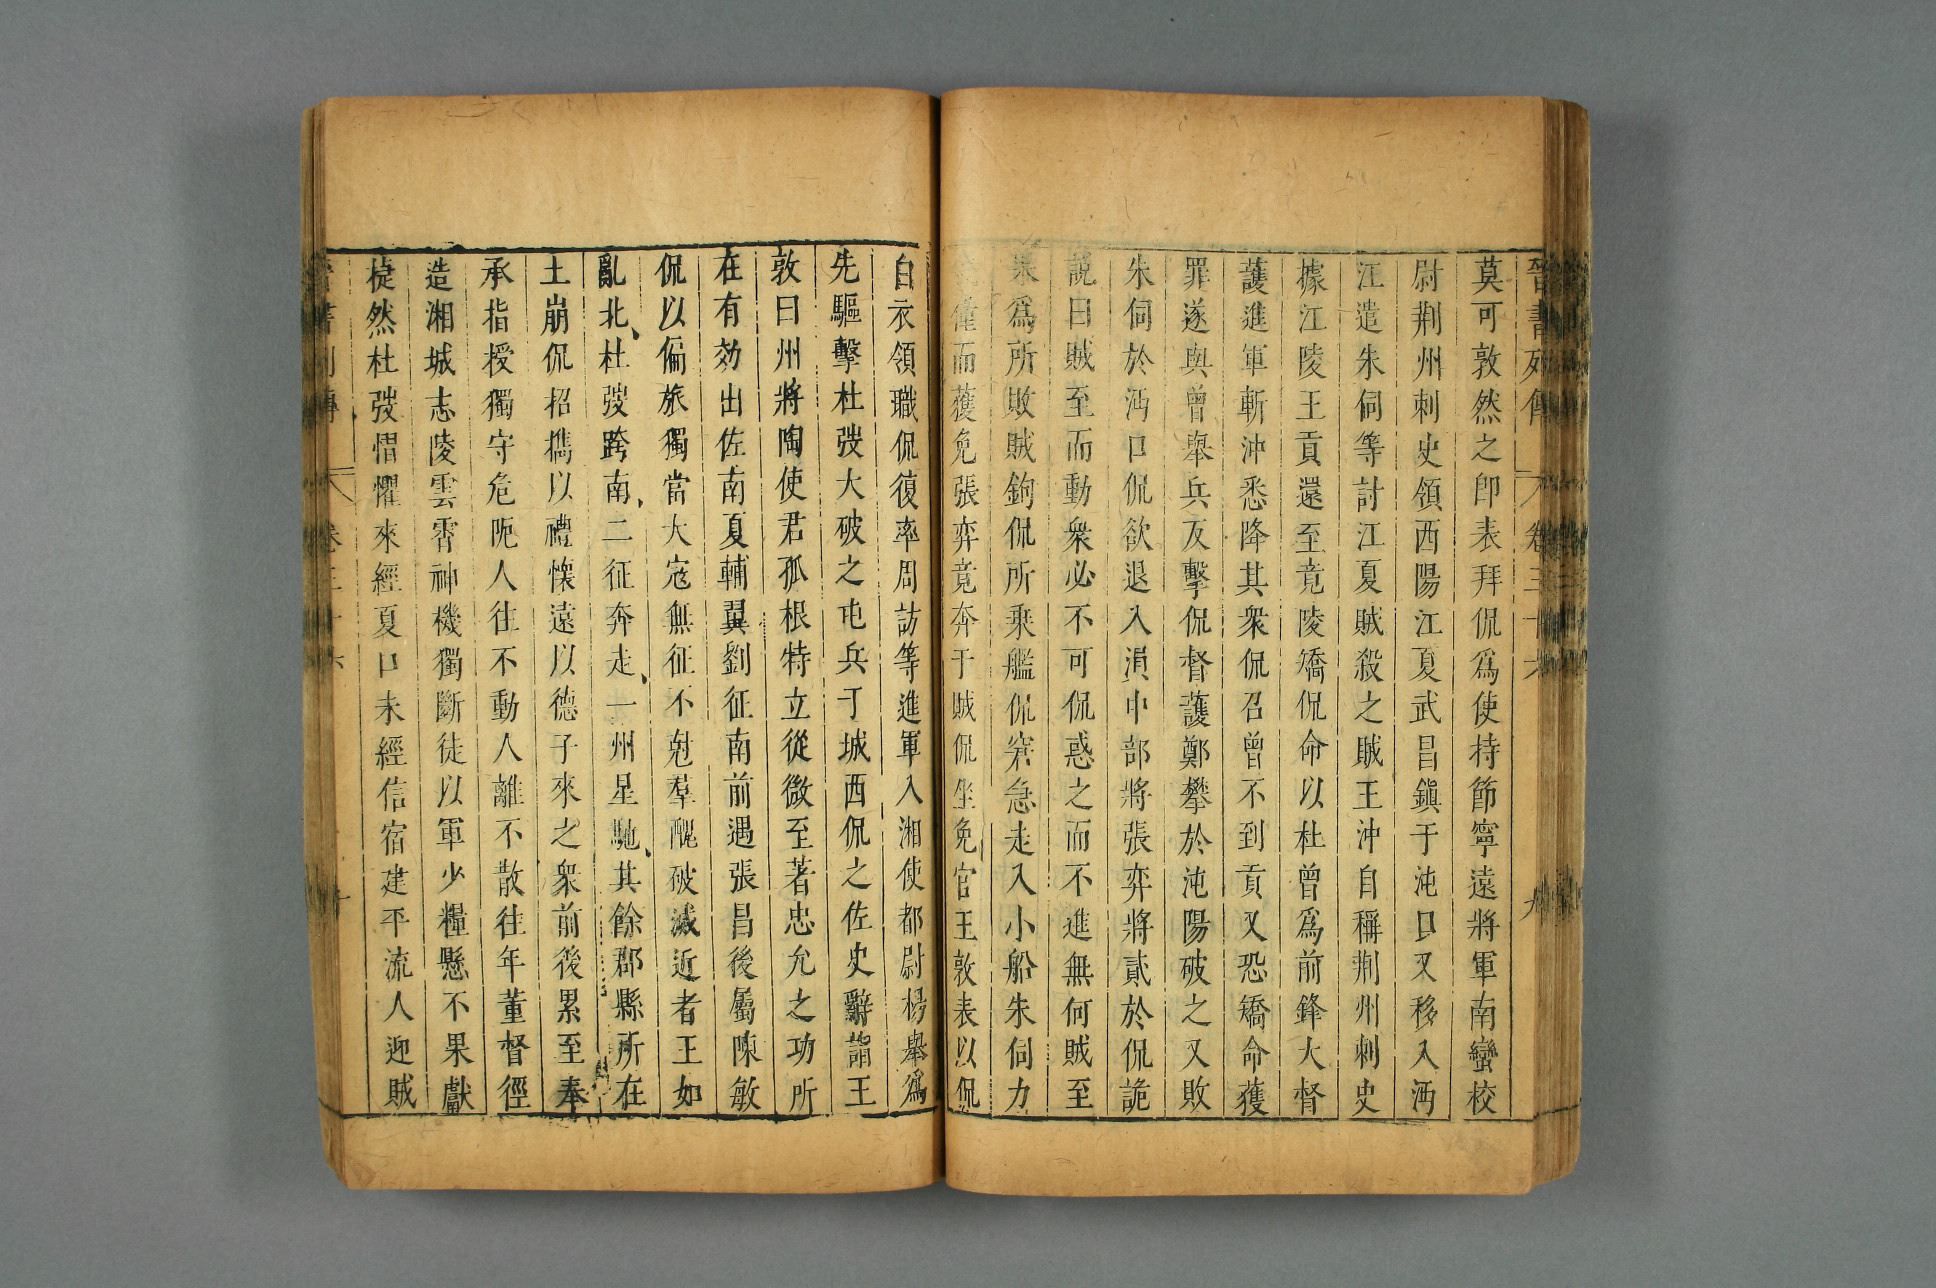 晉書列傳 卷三十六 九
莫可敦然之即表拜侃爲使持節寧遠將軍南蠻校
尉荆州刺史領西陽江夏武昌鎭于沌口又移入沔
江遣朱伺等討江夏賊殺之賊王沖自稱荆州刺史
據江陵王貢還至竟陵矯侃命以杜曾爲前鋒大督
護進軍斬沖悉降其衆侃召曾不到貢又恐矯命獲
罪遂與曾舉兵反擊侃督護鄭攀於沌陽破之又敗
朱伺於沔口侃欲退入溳中部將張弈將貳於侃詭
說曰賊至而動衆必不可侃惑之而不進無何賊至
果爲所敗賊鉤侃所乗艦侃窘急走入小船朱伺力
僅而獲免張弈竟奔于賊侃坐免官王敦表以侃
白衣領職侃復率周訪等進軍入湘使都尉楊舉爲
先驅擊杜弢大破之屯兵于城西侃之佐史辭詣王
敦曰州將陶使君孤根特立從微至著忠允之功所
在有効出佐南夏輔翼劉征南前遇張昌後屬陳敏
侃以偏旅獨當大宼無征不尅羣醜破滅近者王如
亂北杜弢跨南二征奔走一州星馳其餘郡縣所在
土崩侃招攜以禮懷遠以德子來之衆前後累至奉
承指授獨守危阨人往不動人離不散往年董督徑
造湘城志陵雲霄神機獨斷徒以軍少糧懸不果獻
㨗然杜弢慴懼來經夏口未經信宿建平流人迎賊
晉書列傳 卷三十六 十